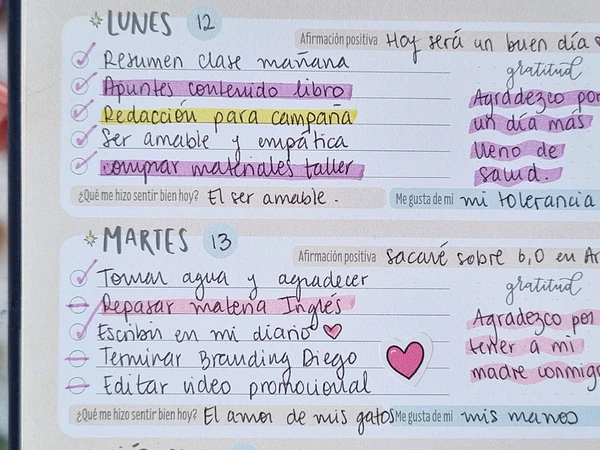 LUNES 12
Afirmación positiva Hoy será un buen día
Resumen clase mañana
gratitud
Apuntes contenido libro
Agradezco por
Redacción para campaña
un día más
Ser amable y empática
lleno de
comprar materiales taller
salud.
¿Qué me hizo sentir bien hoy? El ser amable.
Me gusta de mi mi tolerancia
MARTES 13
Afirmación positiva Sacaré sobre 6,0 en Ar
Tomar agua y agradecer
gratitud
Repasar materia Inglés
Agradezco por
Escribir en mi diario
tener a mi
Terminar Branding Diego
madre conmigo
Editar video promocional
¿Qué me hizo sentir bien hoy? El amor de mis gatos
Me gusta de mi mis manos